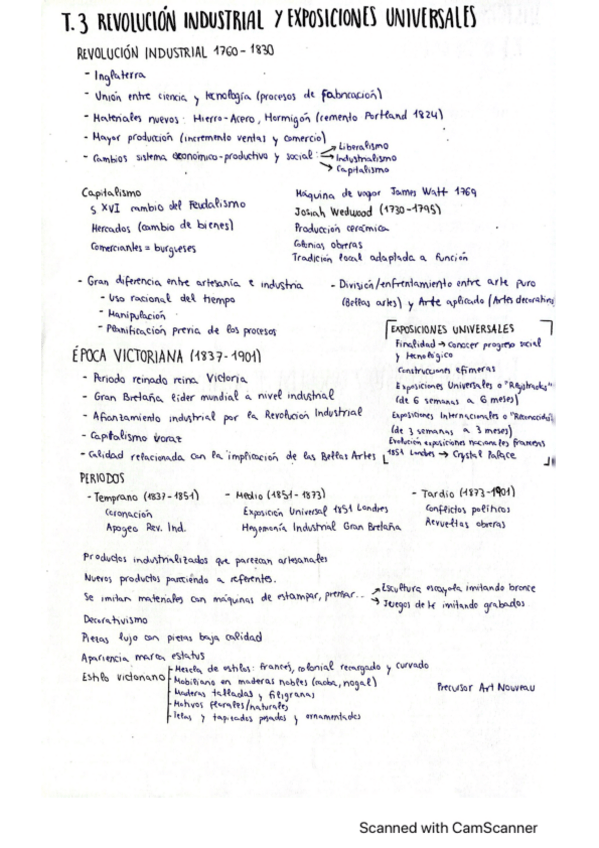 T.3 REVOLUCIÓN INDUSTRIAL Y EXPOSICIONES UNIVERSALES
REVOLUCIÓN INDUSTRIAL 1760-1830
- Inglaterra
- Unión entre ciencia y tecnología (procesos de fabricación)
- Materiales nuevos: Hierro-Acero, Hormigón (cemento Portland 1824)
- Mayor producción (incremento ventas y comercio)
- Cambios sistema económico-productivo y social: → Liberalismo
→ Industrialismo
→ Capitalismo
Capitalismo
S XVI cambio del Feudalismo
Mercados (cambio de bienes)
Comerciantes = burgueses
Máquina de vapor James Watt 1769
Josiah Wedwood (1730-1795)
Producción cerámica
Colonias obreras
Tradición local adaptada a función
- Gran diferencia entre artesanía e industria
- Uso racional del tiempo
- Manipulación
- Planificación previa de los procesos
- División/enfrentamiento entre arte puro
(Bellas artes) y Arte aplicado (Artes decorativa
EXPOSICIONES UNIVERSALES
Finalidad → conocer progreso social
y tecnológico
Construcciones efímeras
Exposiciones Universales o "Registradas"
(de 6 semanas a 6 meses)
Exposiciones Internacionales o "Reconocidas
(de 3 semanas a 3 meses)
Evolución exposiciones nacionales francesas
1851 Londres → Crystal Palace
ÉPOCA VICTORIANA (1837-1901)
- Periodo reinado reina Victoria
- Gran Bretaña líder mundial a nivel industrial
- Afianzamiento industrial por la Revolución Industrial
- Capitalismo voraz
- Calidad relacionada con la implicación de las Bellas Artes
PERIODOS
- Temprano (1837-1851)
Coronación
Apogeo Rev. Ind.
- Medio (1851-1873)
Exposición Universal 1851 Londres
Hegemonía Industrial Gran Bretaña
- Tardío (1873-1901)
Conflictos políticos
Revueltas obreras
Productos industrializados que parezcan artesanales
Nuevos productos pareciendo a referentes.
Se imitan materiales con máquinas de estampar, prensar... → Escultura escayola imitando bronce
→ Juegos de té imitando grabados.
Decorativismo
Piezas lujo con piezas baja calidad
Apariencia marca estatus
Estilo victoriano
- Mezcla de estilos: francés, colonial recargado y curvado
- Mobiliario en maderas nobles (caoba, nogal)
- Maderas talladas y filigranas
- Motivos florales/naturales
- Telas y tapizados pesados y ornamentados
Precursor Art Nouveau
Scanned with CamScanner